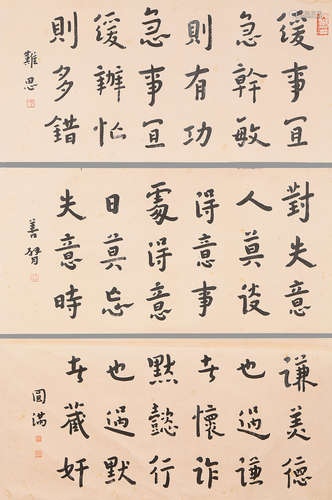 緩事宜
急幹敏
則有功
急事宜
緩辦忙
則多錯
難思
對失意
人莫談
得意事
處得意
日莫忘
失意時
善
謙美德
也過謙
者懷詐
默懿行
也過默
者藏奸
圓滿